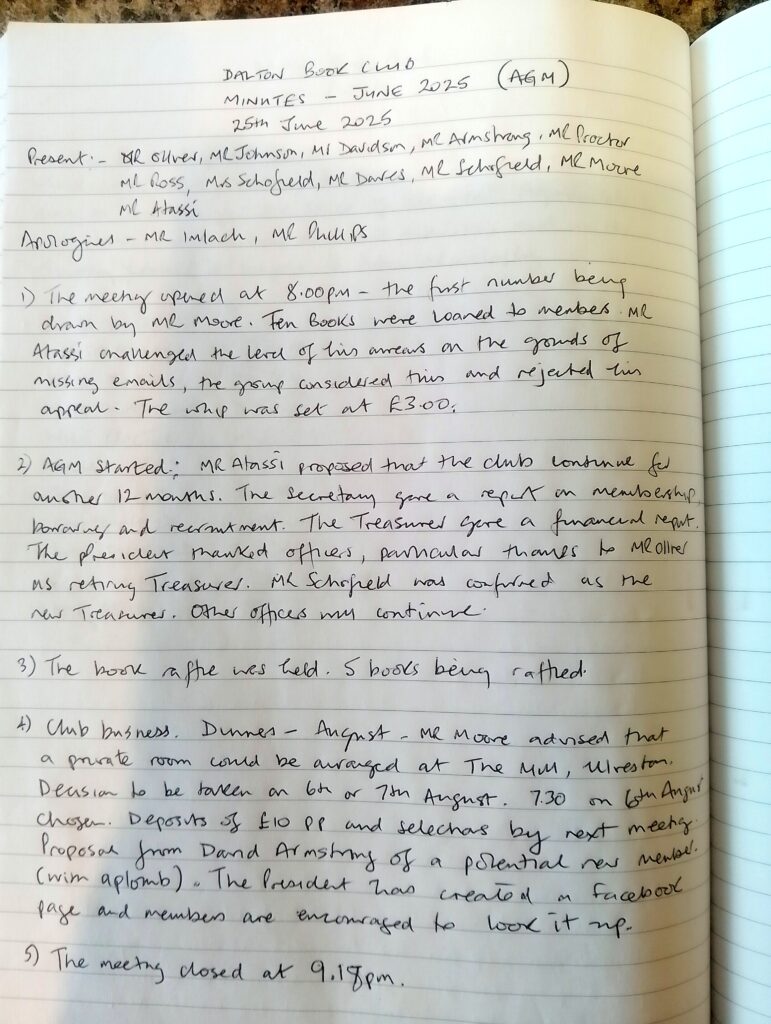 DALTON BOOK CLUB
MINUTES - JUNE 2025 (AGM)
25th June 2025
Present:- MR Oliver, MR Johnson, Mr Davidson, MR Armstrong, MR Proctor
MR Ross, Mrs Schofield, MR Davies, MR Schofield, MR Moore
MR Atassi
Apologies - MR Imlach, MR Phillips
1) The meeting opened at 8.00pm - the first number being
drawn by MR Moore. Ten Books were loaned to members. MR
Atassi challenged the level of his arrears on the grounds of
missing emails, the group considered this and rejected his
appeal. The whip was set at £3.00.
2) AGM started: MR Atassi proposed that the club continue for
another 12 months. The Secretary gave a report on membership,
borrowing and recruitment. The Treasurer gave a financial report.
The President thanked officers, particular thanks to MR Oliver
as retiring Treasurer. MR Schofield was confirmed as the
new Treasurer. Other officers will continue.
3) The book raffle was held. 5 books being raffled.
4) Club business. Dinner - August - MR Moore advised that
a private room could be arranged at The Mill, Ulverston.
Decision to be taken on 6th or 7th August. 7.30 on 6th August
chosen. Deposits of £10 pp and selections by next meeting.
Proposal from David Armstrong of a potential new member.
(with aplomb). The President has created a Facebook
page and members are encouraged to look it up.
5) The meeting closed at 9.18pm.